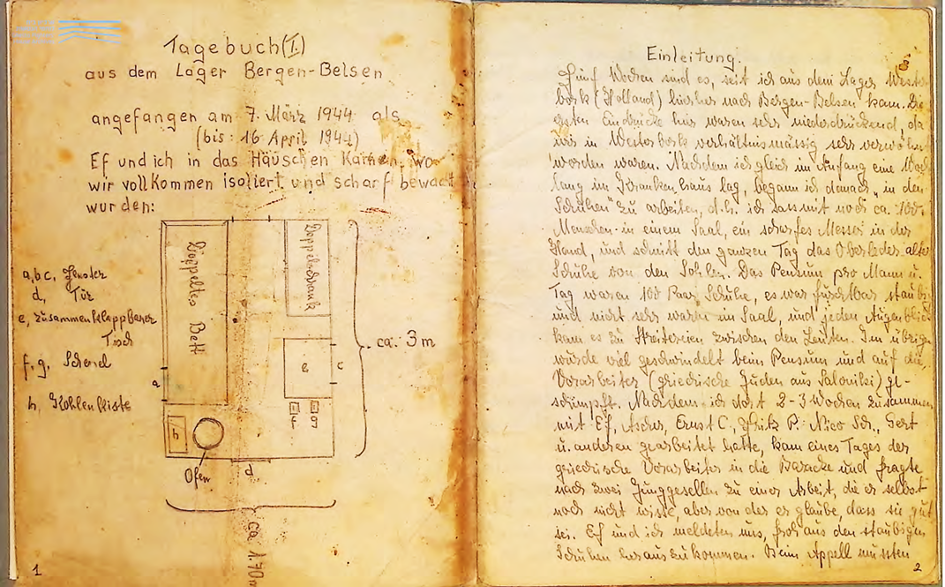 Tagebuch (I.)
aus dem Lager Bergen-Belsen
angefangen am 7. März 1944 als
(bis: 16. April 1944)
Ef und ich in das Häuschen Kamen, wo
wir vollkommen isoliert und scharf bewacht
wurden:
Doppeltes Bett
Doppelschrank
a, b c, Fenster
d, Tür
e, zusammenklappbarer
Tisch
f. g. Schemel
h, Kohlenkiste
a
e
c
f
g
h
Ofen
d
ca. 3 m
ca. 1.70 m
1
Einleitung.
Fünf Wochen sind es, seit ich aus dem Lager Wester-
bork (Holland) hierher nach Bergen-Belsen kam. Die
ersten Eindrücke hier waren sehr niederdrückend, da
wir in Westerbork verhältnismässig sehr verwöhnt
worden waren. Nachdem ich gleich im Anfang eine Woche
lang im Krankenhaus lag, begann ich danach „in den
Schuhen" zu arbeiten, d.h. ich sass mit noch ca. 100
Menschen in einem Saal, ein scharfes Messer in der
Hand, und schnitt den ganzen Tag das Oberleder alter
Schuhe von den Sohlen. Das Pensum pro Mann u.
Tag waren 100 Paar Schuhe, es war furchtbar staubig
und nicht sehr warm im Saal, und jeden Augenblick
kam es zu Streitereien zwischen den Leuten. Im übrigen
wurde viel geschwindelt beim Pensum und auf die
Vorarbeiter (griechische Juden aus Saloniki) ge-
schimpft. Nachdem ich dort 2-3 Wochen zusammen
mit Ef, Ascher, Ernst C. Fritz P. Nico Sch., Gert
u. anderen gearbeitet hatte, kam eines Tages der
griechische Vorarbeiter in die Baracke und fragte
nach zwei Junggesellen zu einer Arbeit, die er selbst
noch nicht wisse, aber von der er glaube, dass sie gut
sei. Ef und ich meldeten uns, froh aus den staubigen
Schuhen herauszukommen. Beim Appell mussten
2